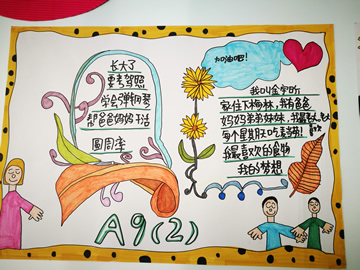 长大了
要考驾照
学会弹钢琴
帮爸爸妈妈干活
圆周率
加油吧!
家住下梅林,我有爸爸
妈妈弟弟妹妹,我最喜欢
每个星期天吃麦当劳!喜欢
我最喜欢的食物
我的梦想
A9(2)